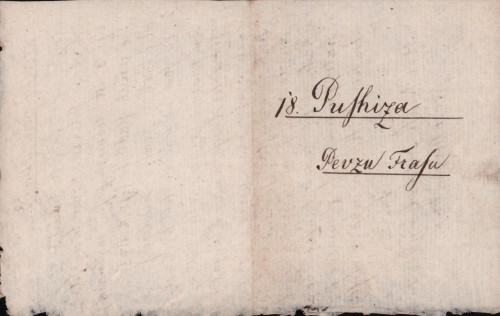 18. Pushiza
Pevzu Frasu